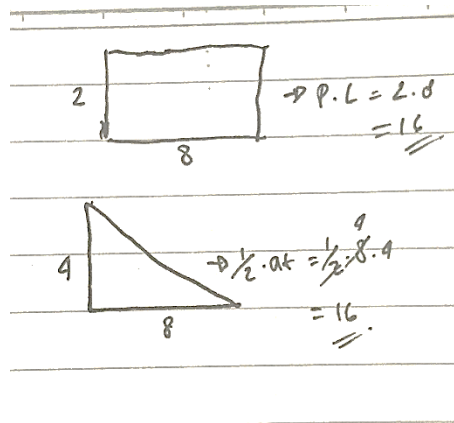 2
→ P.L = 2.8
= 16
8
4
→ 1/2.at = 1/2.8.4
4
= 16
8